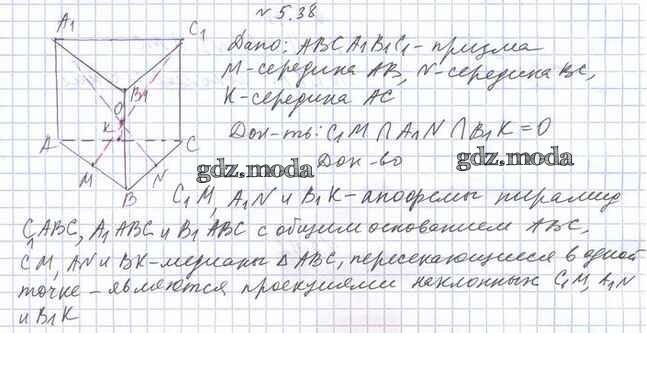 № 5.38
A₁ C₁
Дано: ABCA₁B₁C₁ - призма
M - середина AB, N - середина BC,
B₁
O
K - середина AC
K
Док-ть: C₁M ∩ A₁N ∩ B₁K = O
A C
gdz.moda Док-во gdz.moda
M N
B
C₁M, A₁N и B₁K - апофемы пирамид
C₁ABC, A₁ABC и B₁ABC с общим основанием ABC,
CM, AN и BK - медианы △ ABC, пересекающиеся в одной
точке - являются проекциями наклонных C₁M, A₁N
и B₁K